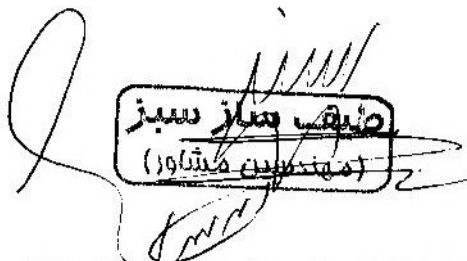 طیف ساز سبز
(مهندسین مشاور)